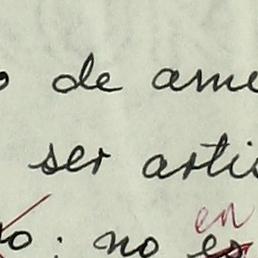 o de ame
ser artis
o. no es
en